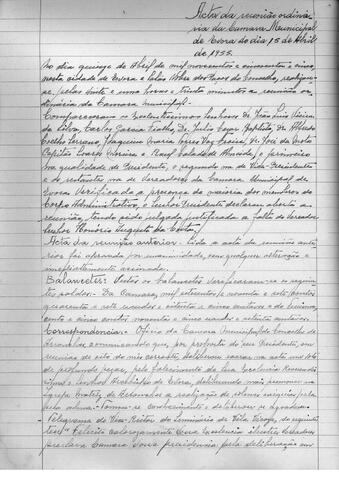 Acta da reunião ordiná-
ria da Camara Municipal
de Evora do dia 15 de Abril
de 1955.
No dia quinze de Abril de mil novecentos e cincoenta e cinco,
nesta cidade de Evora e Salão Nobre dos Paços do Concelho, realizou-
se, pelas vinte e uma horas e trinta minutos a reunião or-
dinária da Camara Municipal.
Compareceram os Excelentissimos Senhores Dr. João Luis Vieira
da Silva, Carlos Garcia Fialho, Dr. Julio Cezar Baptista, Dr. Alberto
Coelho Serrano, Joaquim Maria Torres Vaz Freire, Dr. José da Mota
Capitão Soares Moreira e Ruy Salas de Almeida, o primeiro
na qualidade de Presidente, o segundo na de Vice-Presidente
e os restantes na de Vereadores da Camara Municipal de
Evora. Verificada a presença da maioria dos membros do
Corpo Administrativo, o Senhor Presidente declarou aberta a
reunião, tendo sido julgada justificada a falta do vereador
Senhor Honório
Acta da reunião anterior: Lida a acta da reunião ante-
rior foi aprovada por unanimidade, sem qualquer alteração e
imediatamente assinada.
Balancetes: Pelos os balancetes verificaram-se os seguin-
tes saldos: Da Camara, mil e noventa e sete contos
quarenta e sete escudos e setenta e cinco centavos e de
cento e cinco contos noventa e cinco escudos e setenta centavos.
Correspondencia: Oficio da Camara Municipal do Concelho de
Arraiolos comunicando que, por proposta do seu Presidente, em
reunião de seis do mês corrente, deliberou exarar na acta um voto
de profundo pezar, pelo falecimento de Sua Excelencia Reverendis-
sima o Senhor Arcebispo de Evora, deliberando mais promover na
Igreja Matriz, de Arraiolos a realização de solenes exequias pela
sua alma. Tomou-se conhecimento e deliberou-se agradecer.
Telegrama do Vice-Reitor do Seminário de Vila Viçosa, do seguinte
teor: "Felicito calorosamente Vossa Excelencia ilustres vereadores
preclara Camara Vossa presidencia pela deliberação em